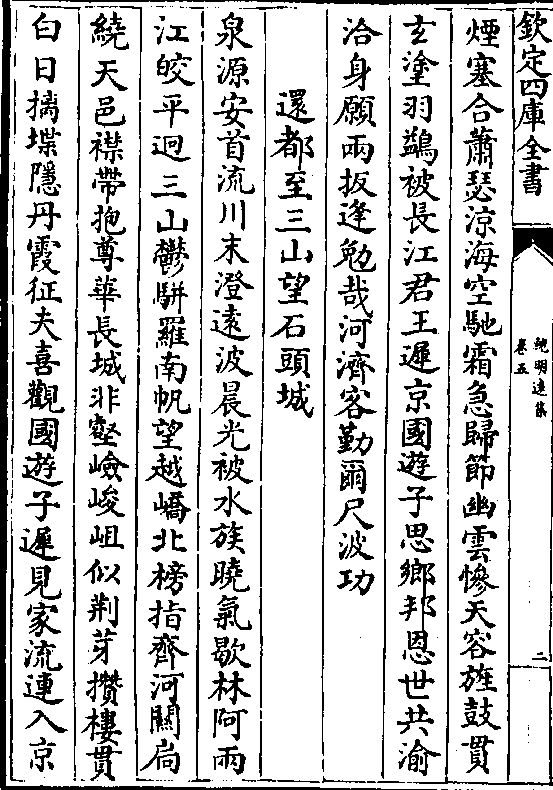 欽定四庫全書
鮑明遠集
卷五
二
煙塞合蕭瑟涼海空馳霜急歸節幽雲慘天容旌鼓貫
玄塗羽鷁被長江君王遲京國遊子思鄉邦恩世共渝
洽身願兩扳逢勉哉河濟客勤爾尺波功
還都至三山望石頭城
泉源安首流川末澄遠波晨光被水族曉氣歇林阿兩
江皎平迥三山鬱駢羅南帆望越嶠北榜指齊河關扃
繞天邑襟帶抱尊華長城非壑嶮峻岨似荆芽攢樓貫
白日摛堞隱丹霞征夫喜觀國遊子遲見家流連入京